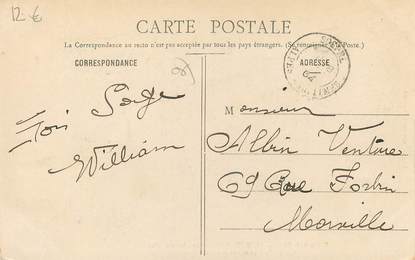 12 €
CARTE POSTALE
La Correspondance au recto n'est pas acceptée par tous les pays étrangers. (Se renseigner à la Poste.)
CORRESPONDANCE
ADRESSE
William
Monsieur
Albin Venture
69 Rue Forbin
Marseille